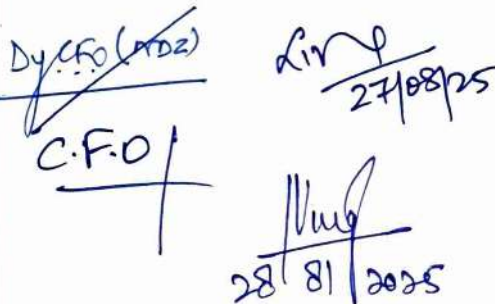 Dy CFO (NDZ)
27/08/25
C.F.O
28 81 2025